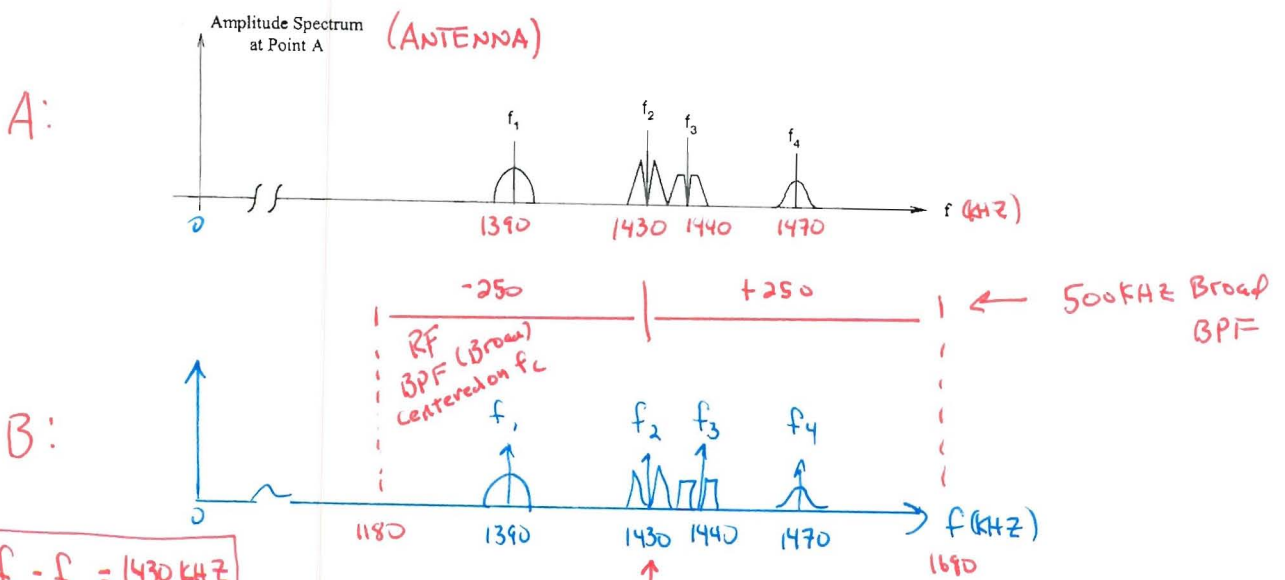 Amplitude Spectrum
at Point A
(ANTENNA)
A:
f₁
f₂
f₃
f₄
f (KHZ)
0
1390
1430
1440
1470
-250
+250
500KHZ Broad
BPF
RF
BPF (Broad)
centered on fc
B:
f₁
f₂
f₃
f₄
0
1180
1390
1430
1440
1470
f(KHZ)
1690
= 1430 KHZ